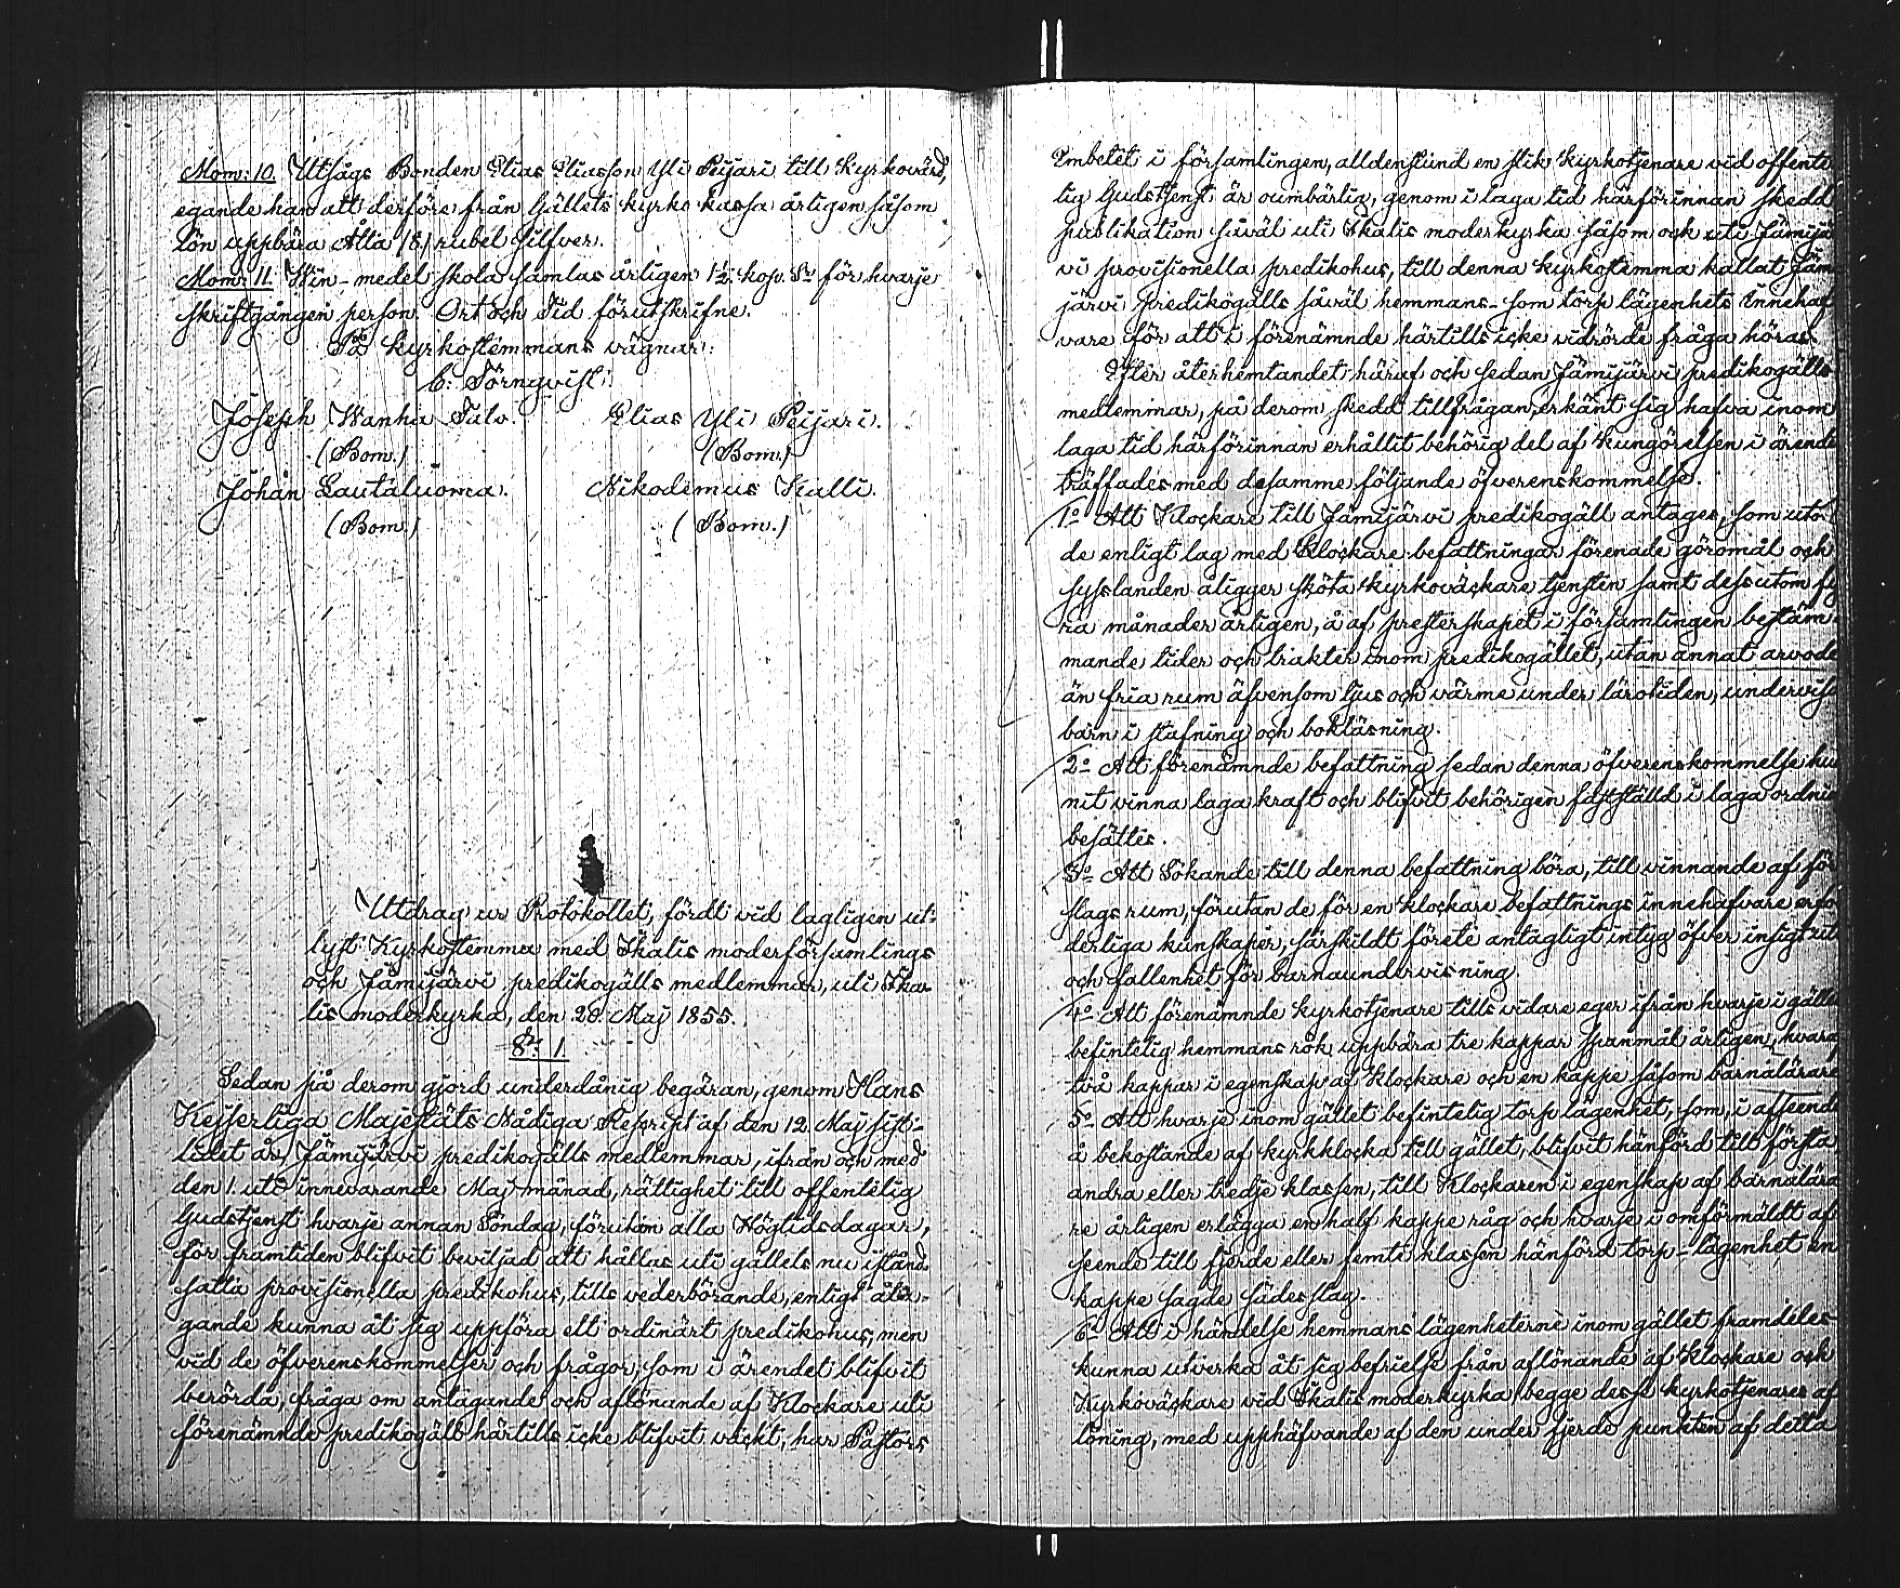 Mom: 10. Utsågs Bonden Elias Eliasson Yli Peijari till Kyrkovärd,
egande han att derföre från Gällets kyrko kassa årligen såsom
lön uppbära Åtta (8) rubel Silfver.
Mom: 11. Win-medel skola samlas årligen 1½ kop. Sr för hvarje
skriftgången person. Ort och Tid förutskrifne.
På kyrkostemmans vägnar:
C: Törnqvist.
Joseph Wanha Talo. Elias Yli Peijari.
(Bom.) (Bom.)
Johan Lautaluoma. Nikodemus Kalli.
(Bom.) (Bom.)
Utdrag ur Protokollet, fördt vid lagligen ut-
lyst Kyrkostemma med Ikalis moderförsamlings
och Jämijärvi predikogälls medlemmar, uti Ika-
lis moderkyrka, den 28. Maj 1855.
§. 1
Sedan på derom gjord underdånig begäran, genom Hans
Kejserliga Majestäts Nådiga Rescript af den 12. Maj sist-
lidet år, Jämijärvi predikogälls medlemmar, ifrån och med
den 1. uti innevarande Maj månad, rättighet till offentelig
Gudstjenst hvarje annan Söndag, förutom alla Högtidsdagar,
för framtiden blifvit beviljad att hållas uti gällets nu istånd-
satta provisionella predikohus, tills vederbörande, enligt åta-
gande kunna åt sig uppföra ett ordinärt predikohus; men
vid de öfverenskommelser och frågor, som i ärendet blifvit
berörda, fråga om antagande och aflönande af Klockare uti
förenämnde predikogäll härtills icke blifvit väckt; har Pastors
Embetet i församlingen, alldenstund en slik Kyrkotjenare vid offente
lig Gudstjenst är oumbärlig, genom i laga tid härförinnan skedd
publikation såväl uti Ikalis moderkyrka såsom ock uti Jämijär
vi provisionella predikohus, till denna kyrkostemma kallat Jämi
järvi predikogälls såväl hemmans- som torp lägenhets Innehaf
vare för att i förenämnde härtills icke vidrörde fråga höras.
Efter återhemtandet häraf och sedan Jämijärvi predikogälls
medlemmar, på derom skedd tillfrågan, erkänt sig hafva inom
laga tid härförinnan erhållit behörig del af Kungörelsen i ärende
träffades med desamme följande öfverenskommelse.
1o Att Klockare till Jämijärvi predikogäll antages, som utö
de enligt lag med Klockare befattningar förenade göromål och
sysslanden åligger sköta kyrkoväckare tjensten samt dessutom fy
ra månader årligen, å af presterskapet i församlingen bestäm-
mande tider och trakter inom predikogället, utan annat arvode
än fria rum äfvensom ljus och värme under lärotiden, undervisa
barn i stafning och bokläsning.
2o Att förenämnde befattning sedan denna öfverenskommelse hun
nit vinna laga kraft och blifvit behörigen fastställd i laga ordnin
besättes.
3o Att Sökande till denna befattning böra, till vinnande af för
slags rum, förutan de för en klockare befattnings innehafvare erfo
derliga kunskaper, särskildt förete antagligt intyg öfver insigt uti
och fallenhet för barnaundervisning.
4o Att förenämnde Kyrkotjenare tills vidare eger ifrån hvarje i gälle
befintelig hemmans rök uppbära tre kappar spanmål årligen, hvaraf
två kappar i egenskap af Klockare och en kappe såsom barnalärare
5o Att hvarje inom gället befintelig torp lägenhet, som, i afseende
å bekostande af kyrkklocka till gället, blifvit hänförd till första
andra eller tredje klassen, till Klockaren i egenskap af barnalära
re årligen erlägga en half kappe råg och hvarje i omförmäldt af
seende till fjerde eller femte klassen hänförd torp-lägenhet en
kappe sagde sädesslag.
6o Att i händelse hemmans lägenheterne inom gället framdeles
kunna utverka åt sig befrielse från aflönande af Klockare och
Kyrkoväckare vid Ikalis moderkyrka begge desse kyrkotjenares af
löning, med upphäfvande af den under fjerde punkten af detta